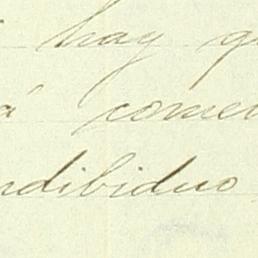 hay qu
á comen
ndibiduo